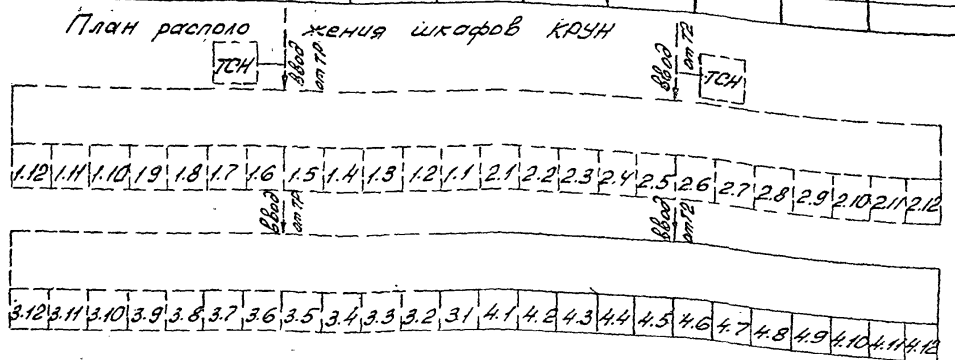 План располо жения шкафов КРУН
ТСН ввод от ТР ввод от Т2 ТСН
1.12 1.11 1.10 1.9 1.8 1.7 1.6 1.5 1.4 1.3 1.2 1.1 2.1 2.2 2.3 2.4 2.5 2.6 2.7 2.8 2.9 2.10 2.11 2.12
ввод от ТР ввод от Т2
3.12 3.11 3.10 3.9 3.8 3.7 3.6 3.5 3.4 3.3 3.2 3.1 4.1 4.2 4.3 4.4 4.5 4.6 4.7 4.8 4.9 4.10 4.11 4.12